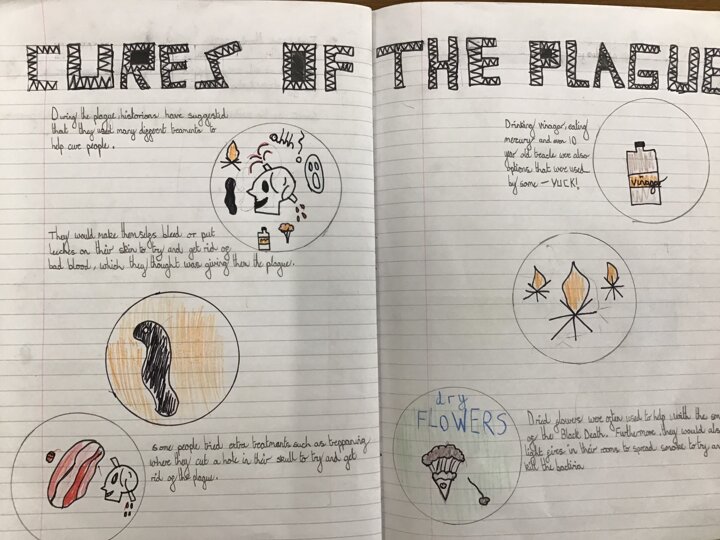 CURES OF THE PLAGUE
During the plague, historians have suggested
that they used many different treaments to
help cure people.
ahh!
They would make themselves bleed or put
leeches on their skin to try and get rid of
bad blood, which they thought was giving them the plague.
Some people tried extra treatments such as trepparing
where they cut a hole in their skull to try and get
rid of the plague.
Drinking vinagar, eating
mercury and even 10
year old treacle were also
options that were used
by some - YUCK!
Vinagar
dry
FLOWERS
Dried flowers were often used to help with the
of the Black Death. Furthermore, they would also
light fires in their rooms to spread smoke to try
kill the bacteria